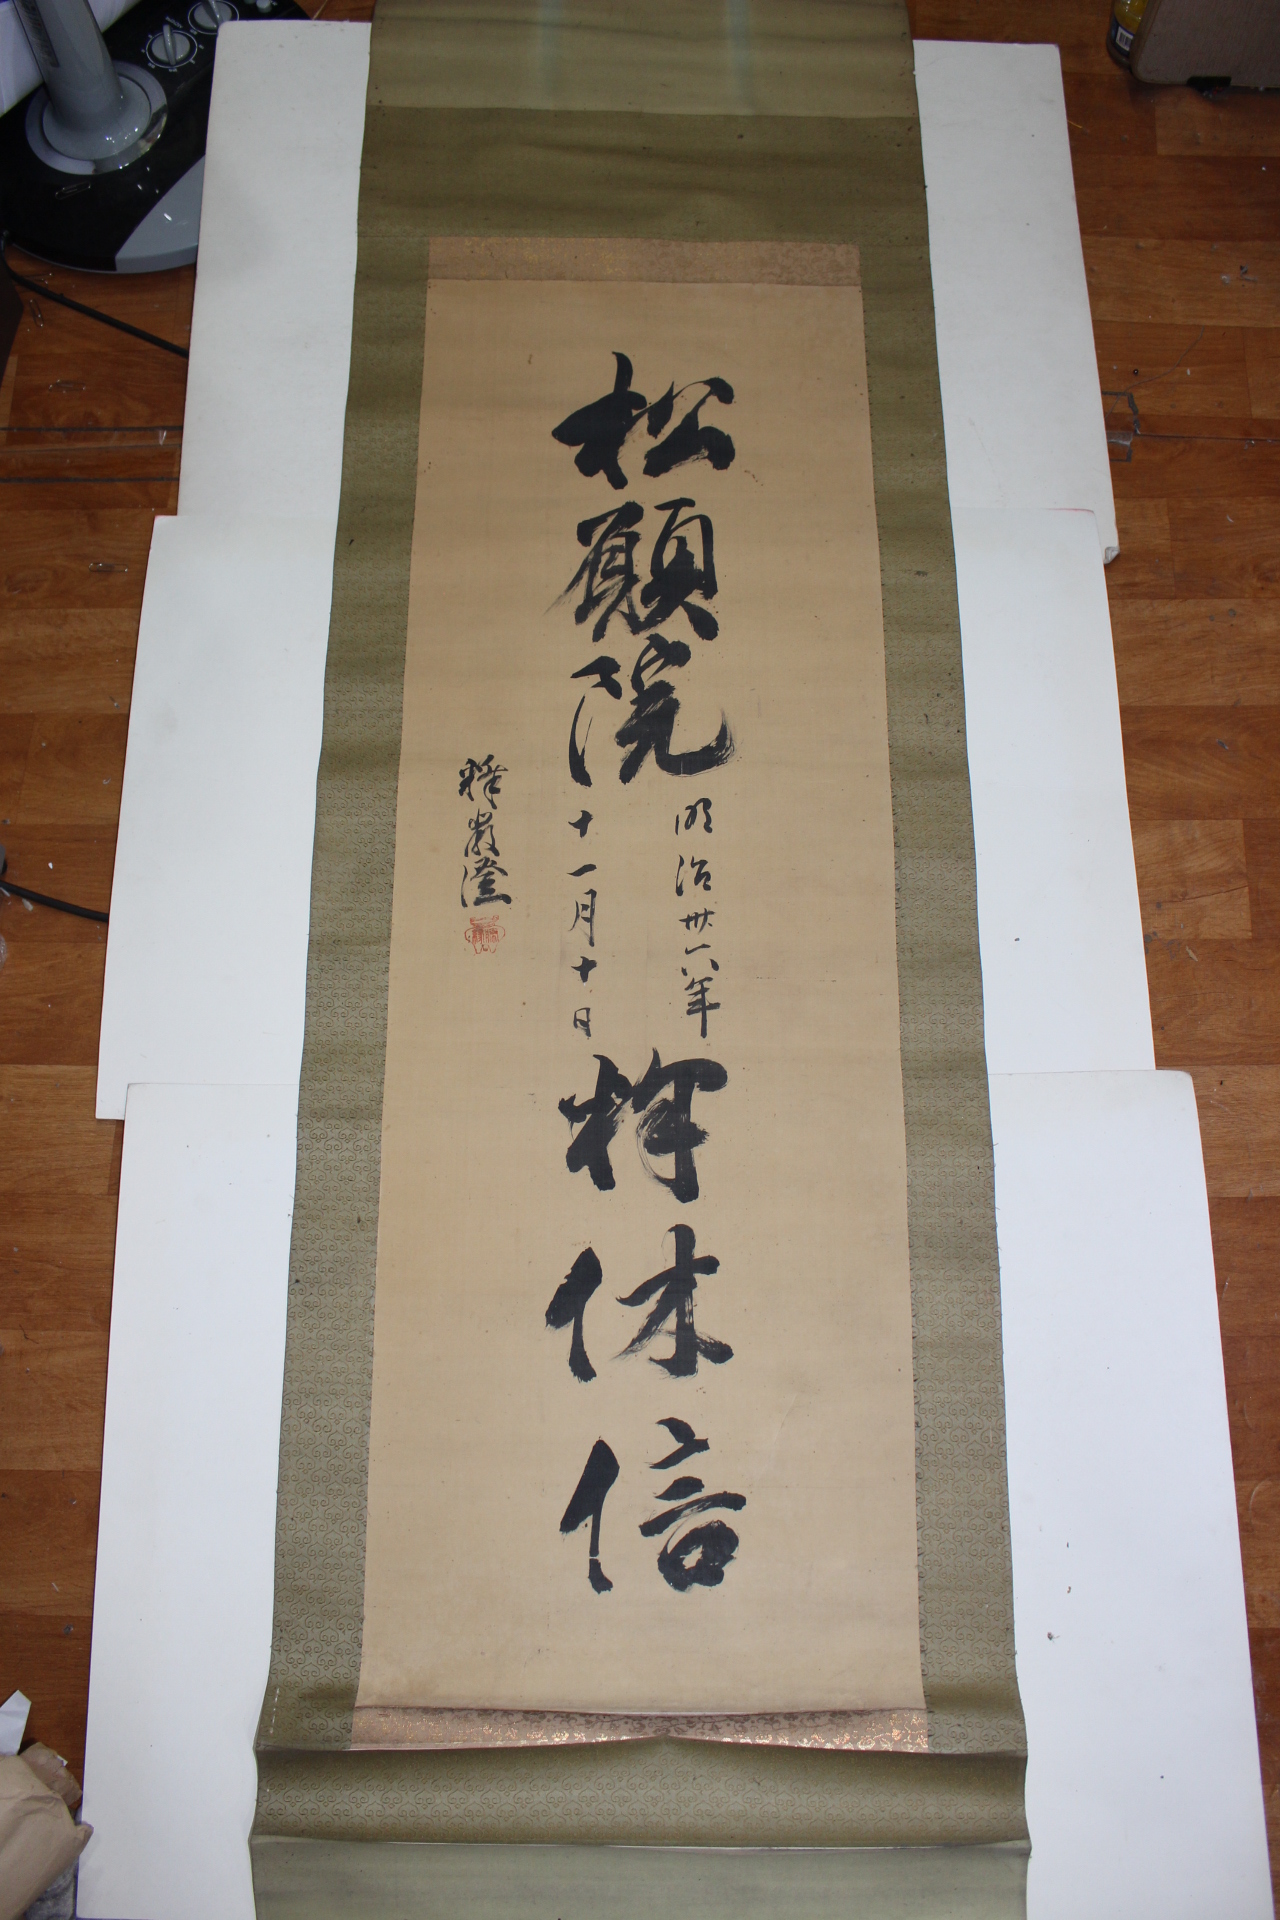 松願院
明治卅六年
十一月十日
釋休信
釋厳澄